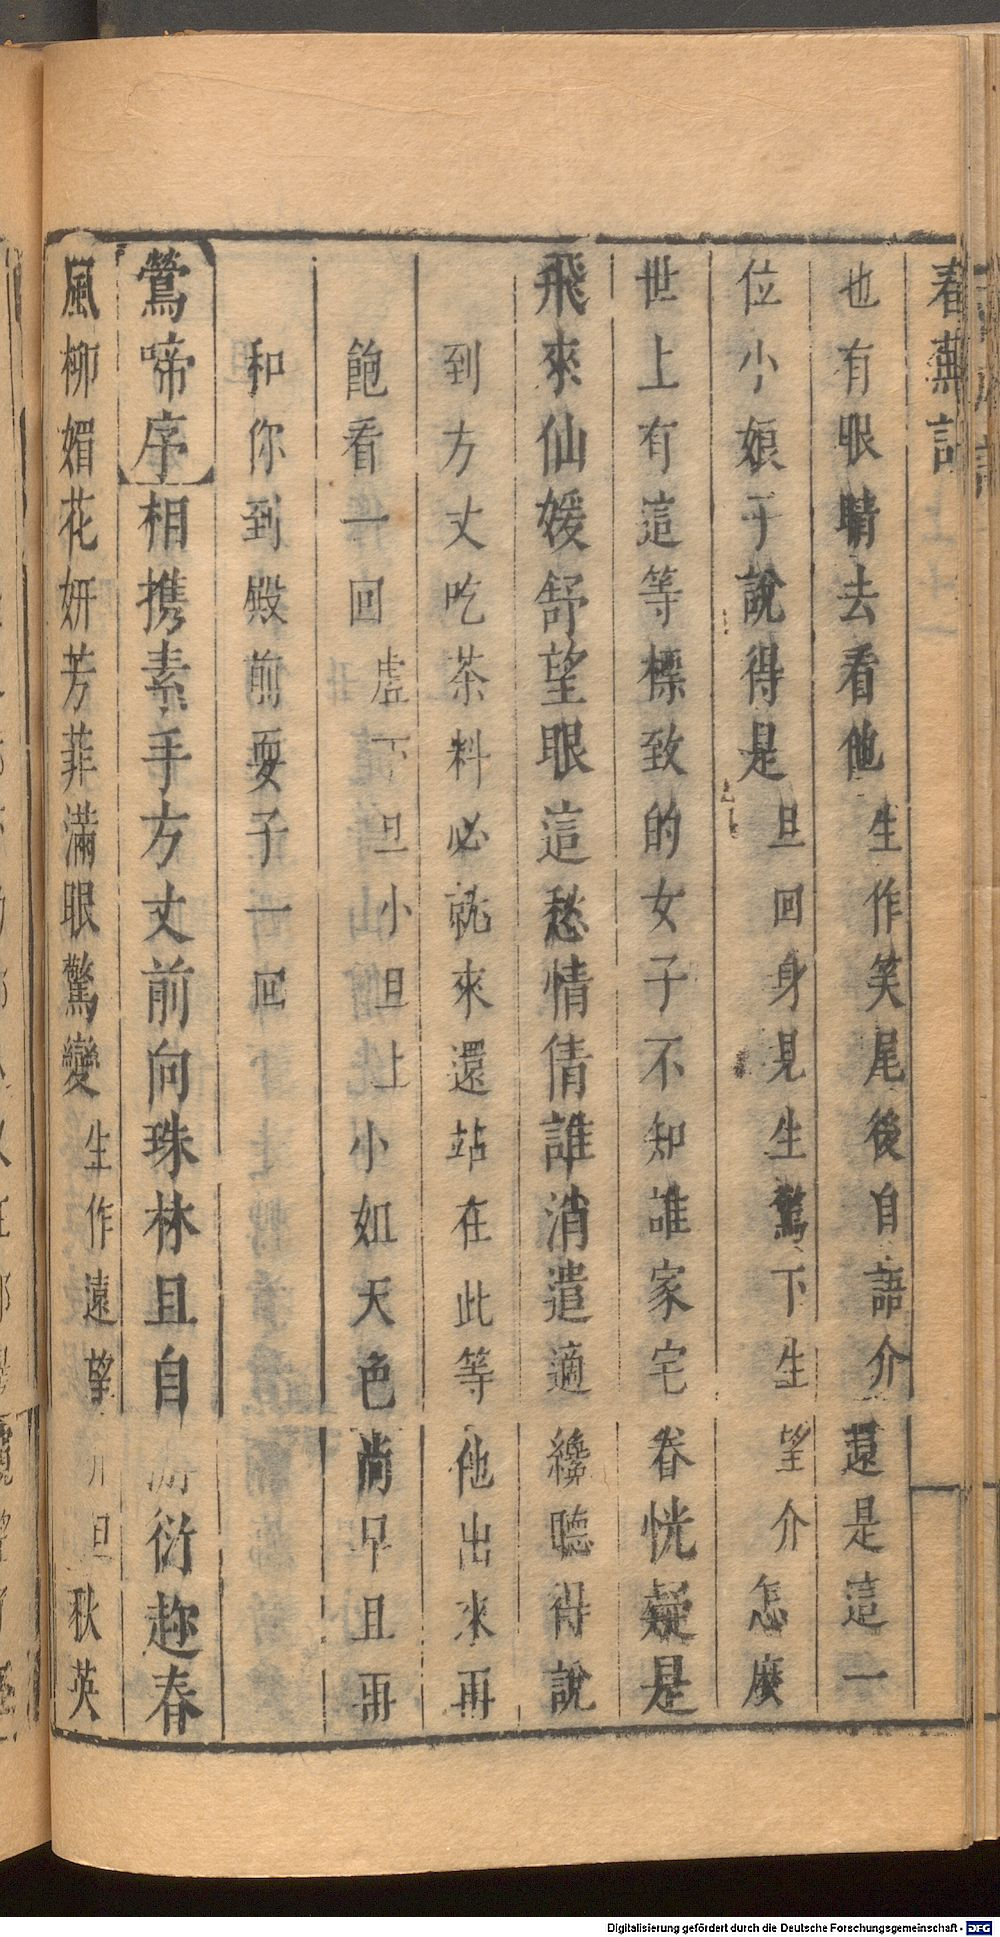 春蕪記
也有眼睛去看他生作笑尾後自語介還是這一
位小娘子說得是旦回身見生驚下生望介怎麼
世上有這等標致的女子不知誰家宅眷恍疑是
飛來仙媛舒望眼這愁情倩誰消遣適纔聽得說
到方丈吃茶料必就來還站在此等他出來再
飽看一回虛下旦小旦上小如天色尚早且再
和你到殿前耍子一回
鶯啼序相携素手方丈前向珠林且自游衍趂春
風柳媚花妍芳菲滿眼驚變生作遠望介旦秋英
Digitalisierung gefördert durch die Deutsche Forschungsgemeinschaft - DFG